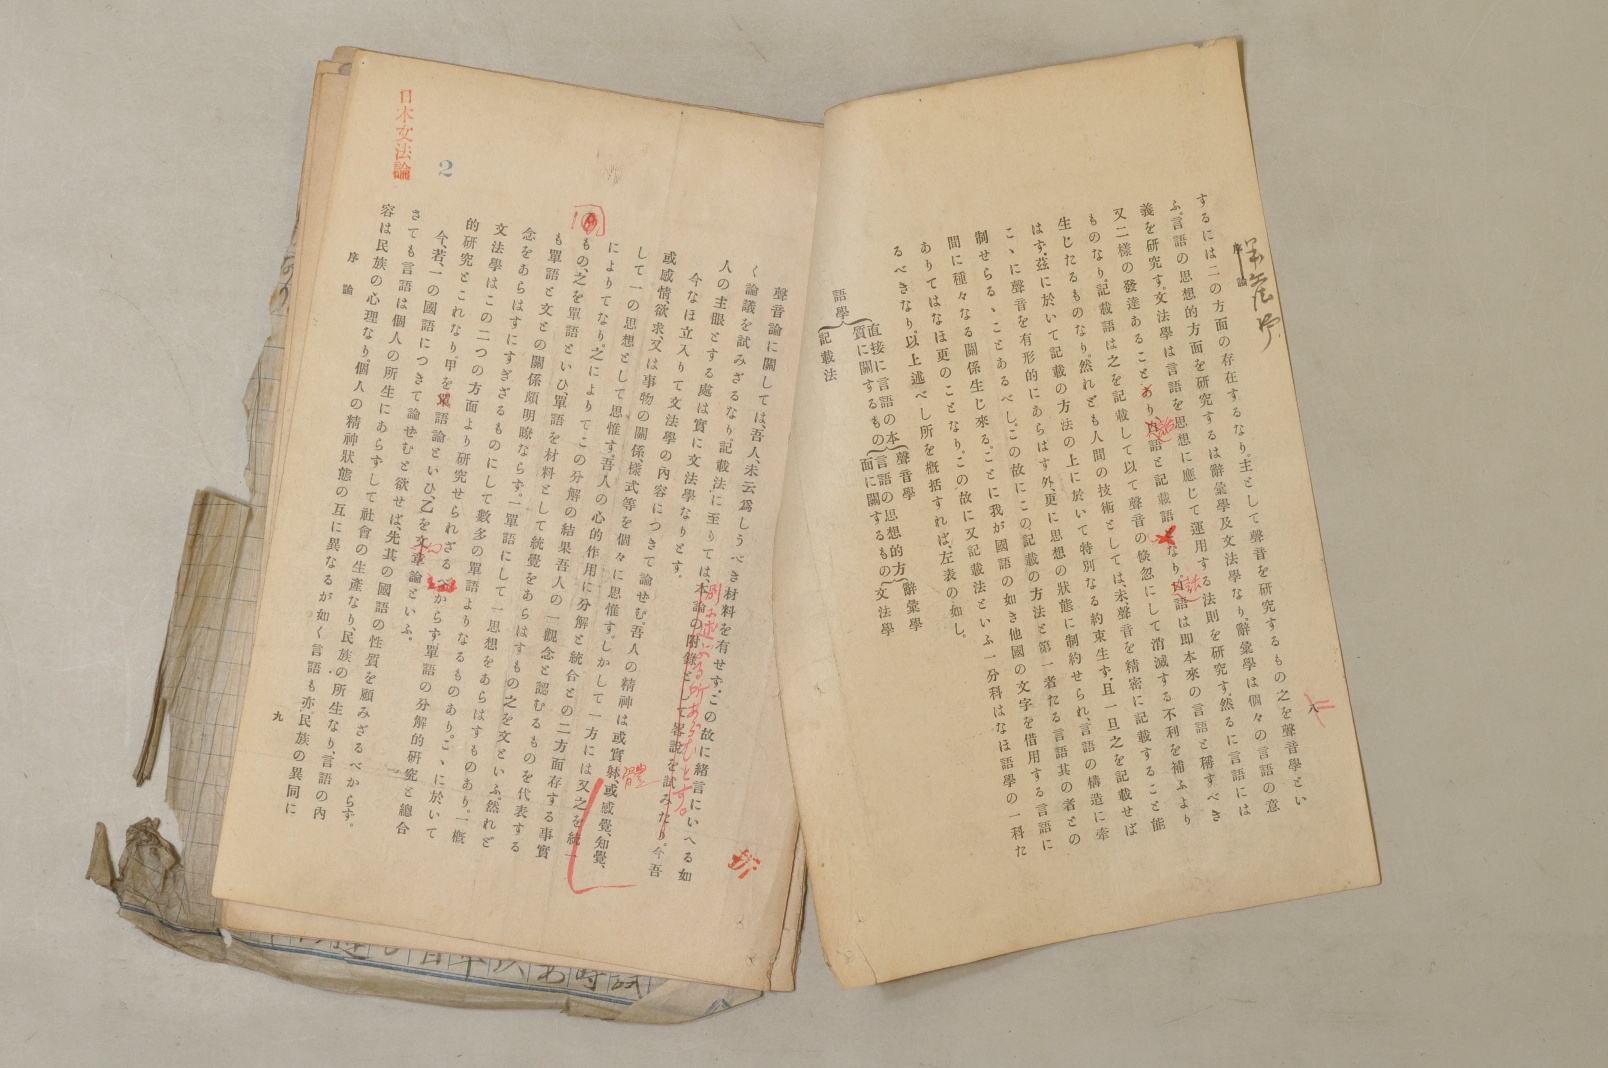 序論
八
するには二の方面の存在するなり。主として聲音を研究するもの之を聲音學とい
ふ。言語の思想的方面を研究するは辭彙學及文法學なり。辭彙學は個々の言語の意
義を研究す。文法學は言語を思想に應じて運用する法則を研究す。然るに言語には
又二樣の發達あることあり。口語と記載語となり。口語は即本來の言語と稱すべき
ものなり。記載語は之を記載して以て聲音の倏忽にして消滅する不利を補ふより
生じたるものなり。然れども人間の技術としては、未聲音を精密に記載すること能
はず。茲に於いて記載の方法の上に於いて特別なる約束生ず。且一旦之を記載せば
こゝに聲音を有形的にあらはす外、更に思想の狀態に制約せられ、言語の構造に牽
制せらるゝことあるべし。この故にこの記載の方法と第一者たる言語其の者との
間に種々なる關係生じ來る。ことに我が國語の如き他國の文字を借用する言語に
ありてはなほ更のことなり。この故に又記載法といふ一分科はなほ語學の一科た
るべきなり。以上述べし所を概括すれば、左表の如し。
語學
直接に言語の本
質に關するもの
聲音學
言語の思想的方
面に關するもの
辭彙學
文法學
記載法
聲音論に關しては、吾人、未云爲しうべき材料を有せず。この故に緒言にいへる如
く論議を試みざるなり。記載法に至りては、本論の附錄として畧說を試みたり。今吾
別に述ぶる所あらむとす。
人の主眼とする處は實に文法學なりとす。
今なほ立入りて文法學の內容につきて論せむ。吾人の精神は或實躰、或感覺、知覺、
體
或感情、欲求、又は事物の關係樣式等を個々に思惟す。しかして一方には又之を統一
して一の思想として思惟す。吾人の心的作用に分解と統合との二方面存する事實
によりてなり。之によりてこの分解の結果吾人の一觀念と認むるものを代表する
もの、之を單語といひ、單語を材料として統覺をあらはすもの之を文といふ。然れど
も單語と文との關係頗明瞭ならず。一單語にして一思想をあらはすものあり。一概
念をあらはすにすぎざるものにして數多の單語よりなるものあり。こゝに於いて
文法學はこの二つの方面より研究せられざるべからず。單語の分解的硏究と總合
的研究とこれなり。甲を單語論といひ、乙を文章論といふ。
今、若、一の國語につきて論せむと欲せば、先其の國語の性質を顧みざるべからず。
さても言語は個人の所生にあらずして社會の生產なり、民族の所生なり、言語の內
容は民族の心理なり。個人の精神狀態の互に異なるが如く言語も亦、民族の異同に
序論
九
日本文法論
2